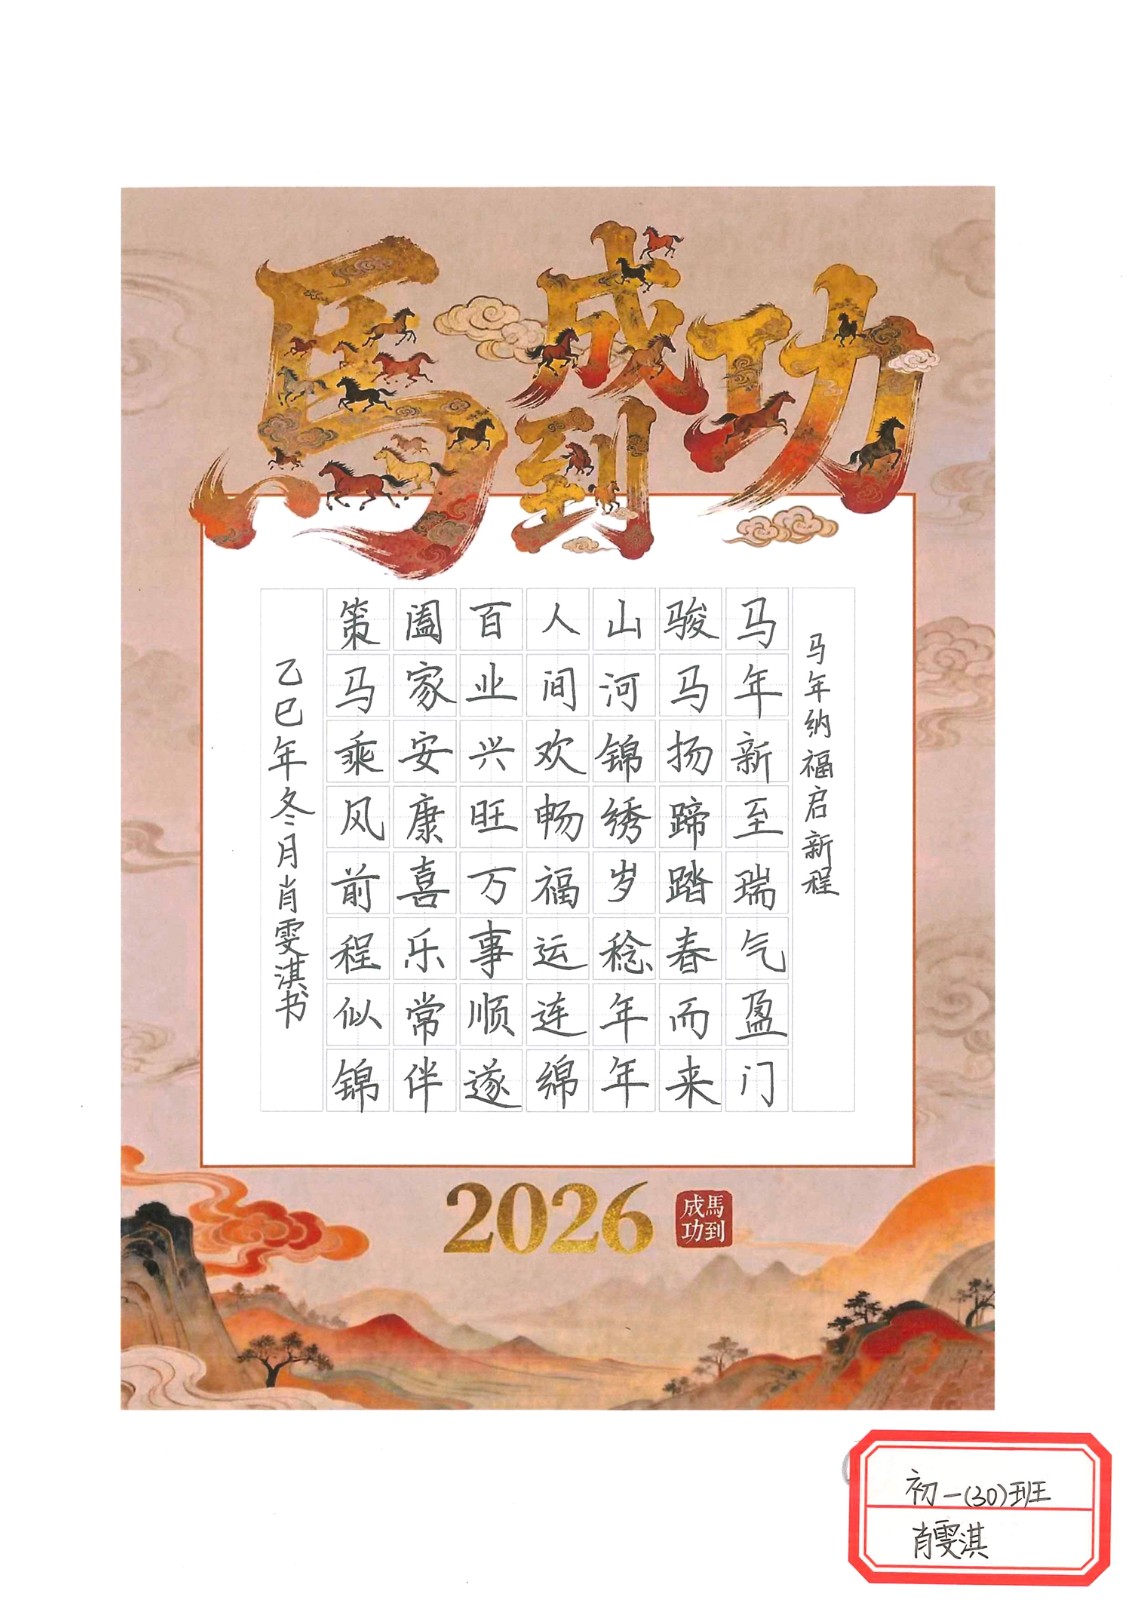 馬到成功
马年纳福启新程
马年新至瑞气盈门
骏马扬蹄踏春而来
山河锦绣岁稔年年
人间欢畅福运连绵
百业兴旺万事顺遂
阖家安康喜乐常伴
策马乘风前程似锦
乙巳年冬月肖雯淇书
2026
馬到
成功
初一(30)班
肖雯淇